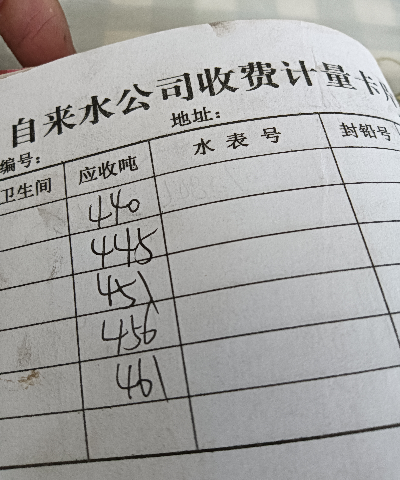 自来水公司收费计量卡片
编号： 地址：
卫生间 应收吨 水表号 封铅号
440
445
451
456
461